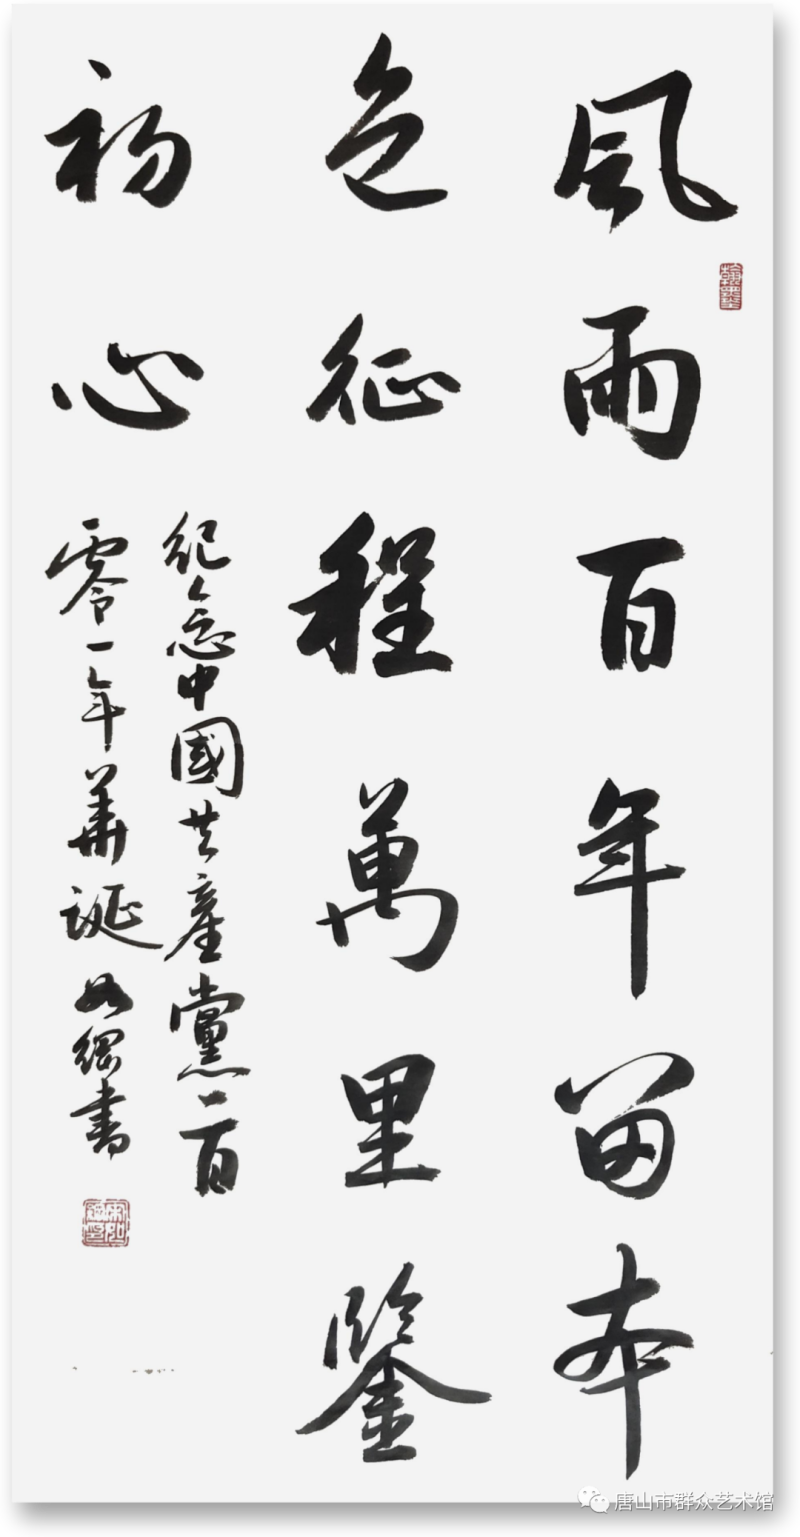 風雨百年留本
色征程萬里鑒
初心
紀念中國共產黨一百
零一年華誕 書
翰墨
唐山市群众艺术馆